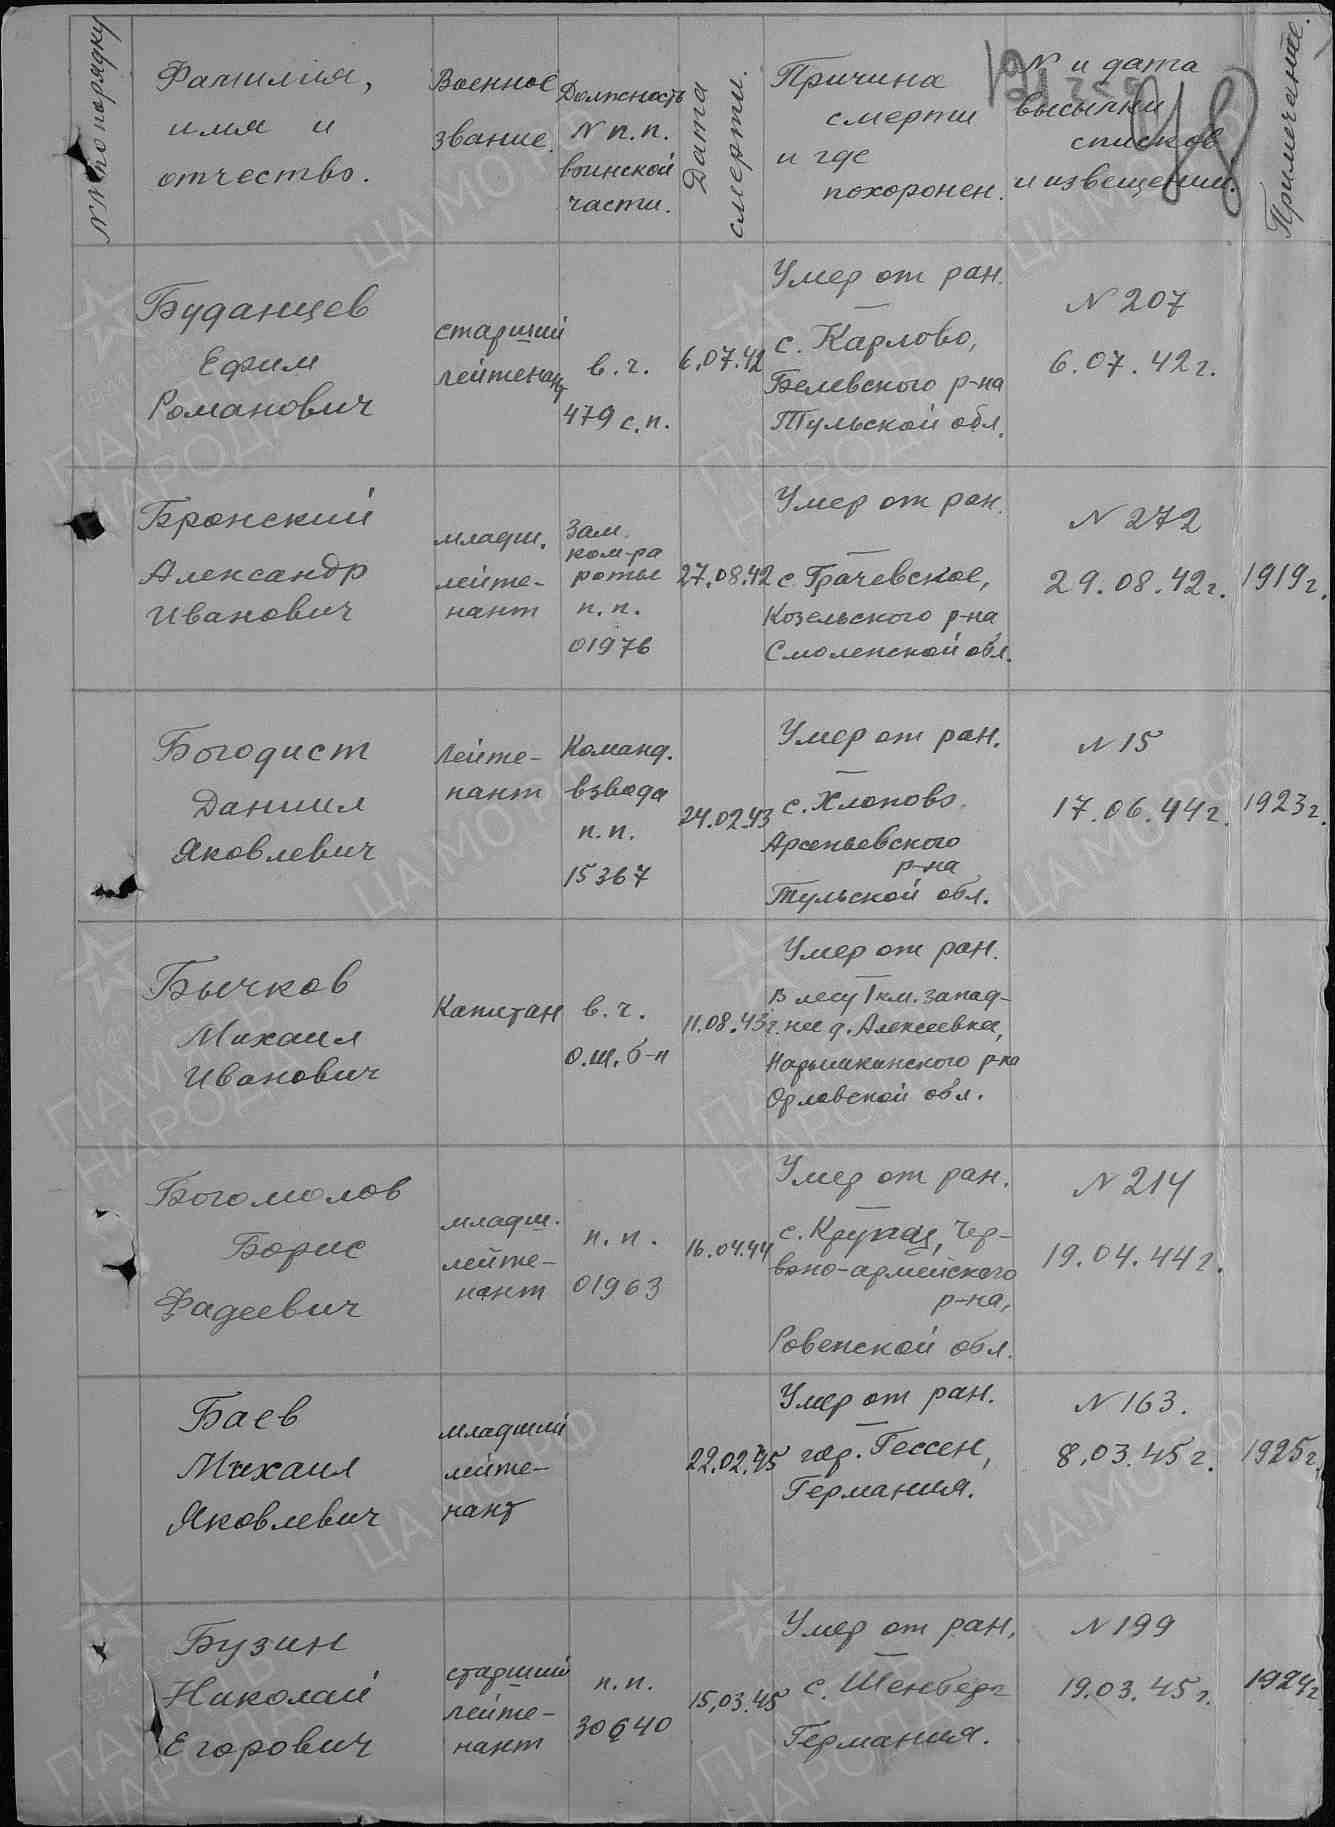 NN по порядку
Фамилия,
имя и
отчество.
Военное
звание.
Должность
N п.п.
воинской
части.
Дата
смерти.
Причина
смерти
и где
похоронен.
N и дата
высылки
списков
и извещений.
Примечание.
18
Буданцев
Ефим
Романович
старший
лейтенант
в.ч.
479 с.п.
6.07.42
Умер от ран.
с. Карлово,
Белевского р-на
Тульской обл.
N 207
6.07.42г.
Бронский
Александр
Иванович
младш.
лейте-
нант
Зам.
ком-ра
роты
п.п.
01976
27.08.42
Умер от ран.
с. Грачевское,
Козельского р-на
Смоленской обл.
N 272
29.08.42г.
1919г.
Богодист
Даниил
Яковлевич
Лейте-
нант
Команд.
взвода
п.п.
15367
24.02.43
Умер от ран.
с. Хлопово
Арсеньевского
р-на
Тульской обл.
N 15
17.06.44г.
1923г.
Бычков
Михаил
Иванович
Капитан
в.ч.
о.ш.б-н
11.08.43г.
Умер от ран.
В лесу 1 км. запад-
нее д. Алексеевка,
Нарышкинского р-на
Орловской обл.
Богомолов
Борис
Фадеевич
младш.
лейте-
нант
п.п.
01963
16.04.44
Умер от ран.
с. Крупец, Чер-
воно-армейского
р-на,
Ровенской обл.
N 214
19.04.44г.
Баев
Михаил
Яковлевич
младший
лейте-
нант
22.02.45
Умер от ран.
гор. Гессен,
Германия.
N 163.
8.03.45г.
1925г.
Бузин
Николай
Егорович
старший
лейте-
нант
п.п.
30640
15.03.45
Умер от ран.
с. Шенберг
Германия.
N 199
19.03.45г.
1924г
ЦА МО РФ
ПАМЯТЬ
НАРОДА